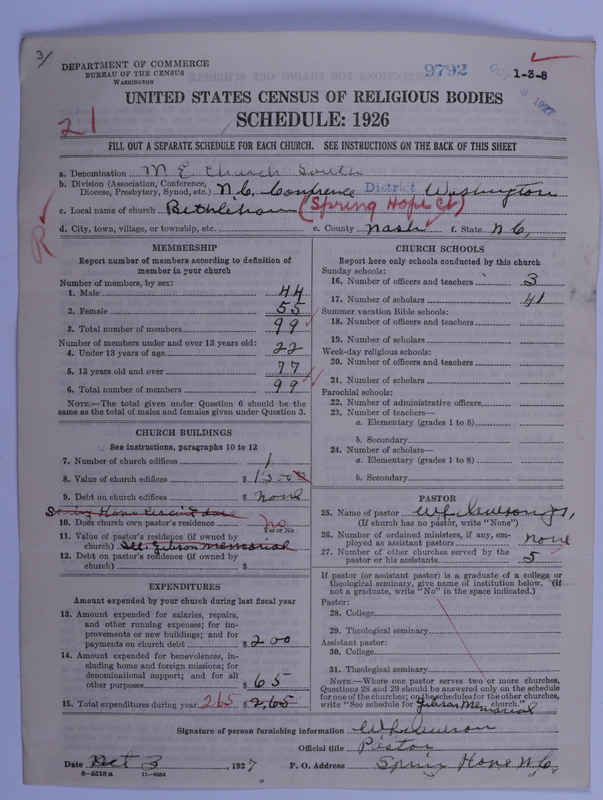 3/
DEPARTMENT OF COMMERCE
BUREAU OF THE CENSUS
WASHINGTON
9792
1-3-8
8 1927
UNITED STATES CENSUS OF RELIGIOUS BODIES
21
SCHEDULE: 1926
FILL OUT A SEPARATE SCHEDULE FOR EACH CHURCH. SEE INSTRUCTIONS ON THE BACK OF THIS SHEET
a. Denomination M E Church South
b. Division (Association, Conference, Diocese, Presbytery, Synod, etc.) N.C. Confrence District Washington
c. Local name of church (Spring Hope Ct)
d. City, town, village, or township, etc. e. County Nash f. State N C,
R
MEMBERSHIP
Report number of members according to definition of
member in your church
Number of members, by sex:
1. Male 44
2. Female 55
3. Total number of members 99
Number of members under and over 13 years old:
4. Under 13 years of age 22
5. 13 years old and over 77
6. Total number of members 99
NOTE.—The total given under Question 6 should be the
same as the total of males and females given under Question 3.
CHURCH BUILDINGS
See instructions, paragraphs 10 to 12
7. Number of church edifices 1
8. Value of church edifices $
9. Debt on church edifices $ None
Spring Hope Circuit does
10. Does church own pastor's residence no
Yes or No
11. Value of pastor's residence (if owned by
church) See Gibson Memorial
12. Debt on pastor's residence (if owned by
church) $
EXPENDITURES
Amount expended by your church during last fiscal year
13. Amount expended for salaries, repairs,
and other running expenses; for im-
provements or new buildings; and for
payments on church debt $ 200
14. Amount expended for benevolences, in-
cluding home and foreign missions; for
denominational support; and for all
other purposes $ 65
15. Total expenditures during year 265 $ 265
CHURCH SCHOOLS
Report here only schools conducted by this church
Sunday schools:
16. Number of officers and teachers 3
17. Number of scholars 41
Summer vacation Bible schools:
18. Number of officers and teachers
19. Number of scholars
Week-day religious schools:
20. Number of officers and teachers
21. Number of scholars
Parochial schools:
22. Number of administrative officers
23. Number of teachers—
a. Elementary (grades 1 to 8)
b. Secondary
24. Number of scholars—
a. Elementary (grades 1 to 8)
b. Secondary
PASTOR
25. Name of pastor
(If church has no pastor, write "None")
26. Number of ordained ministers, if any, em-
ployed as assistant pastors none
27. Number of other churches served by the
pastor or his assistants 5
If pastor (or assistant pastor) is a graduate of a college or
theological seminary, give name of institution below. (If
not a graduate, write "No" in the space indicated.)
Pastor:
28. College
29. Theological seminary
Assistant pastor:
30. College
31. Theological seminary
NOTE.—Where one pastor serves two or more churches,
Questions 28 and 29 should be answered only on the schedule
for one of the churches; on the schedules for the other churches,
write "See schedule for Gibson Memorial church."
Signature of person furnishing information
Official title Pastor
Date Oct 3, 1927 P. O. Address Spring Hope N.C.
8-5518a 11-6684